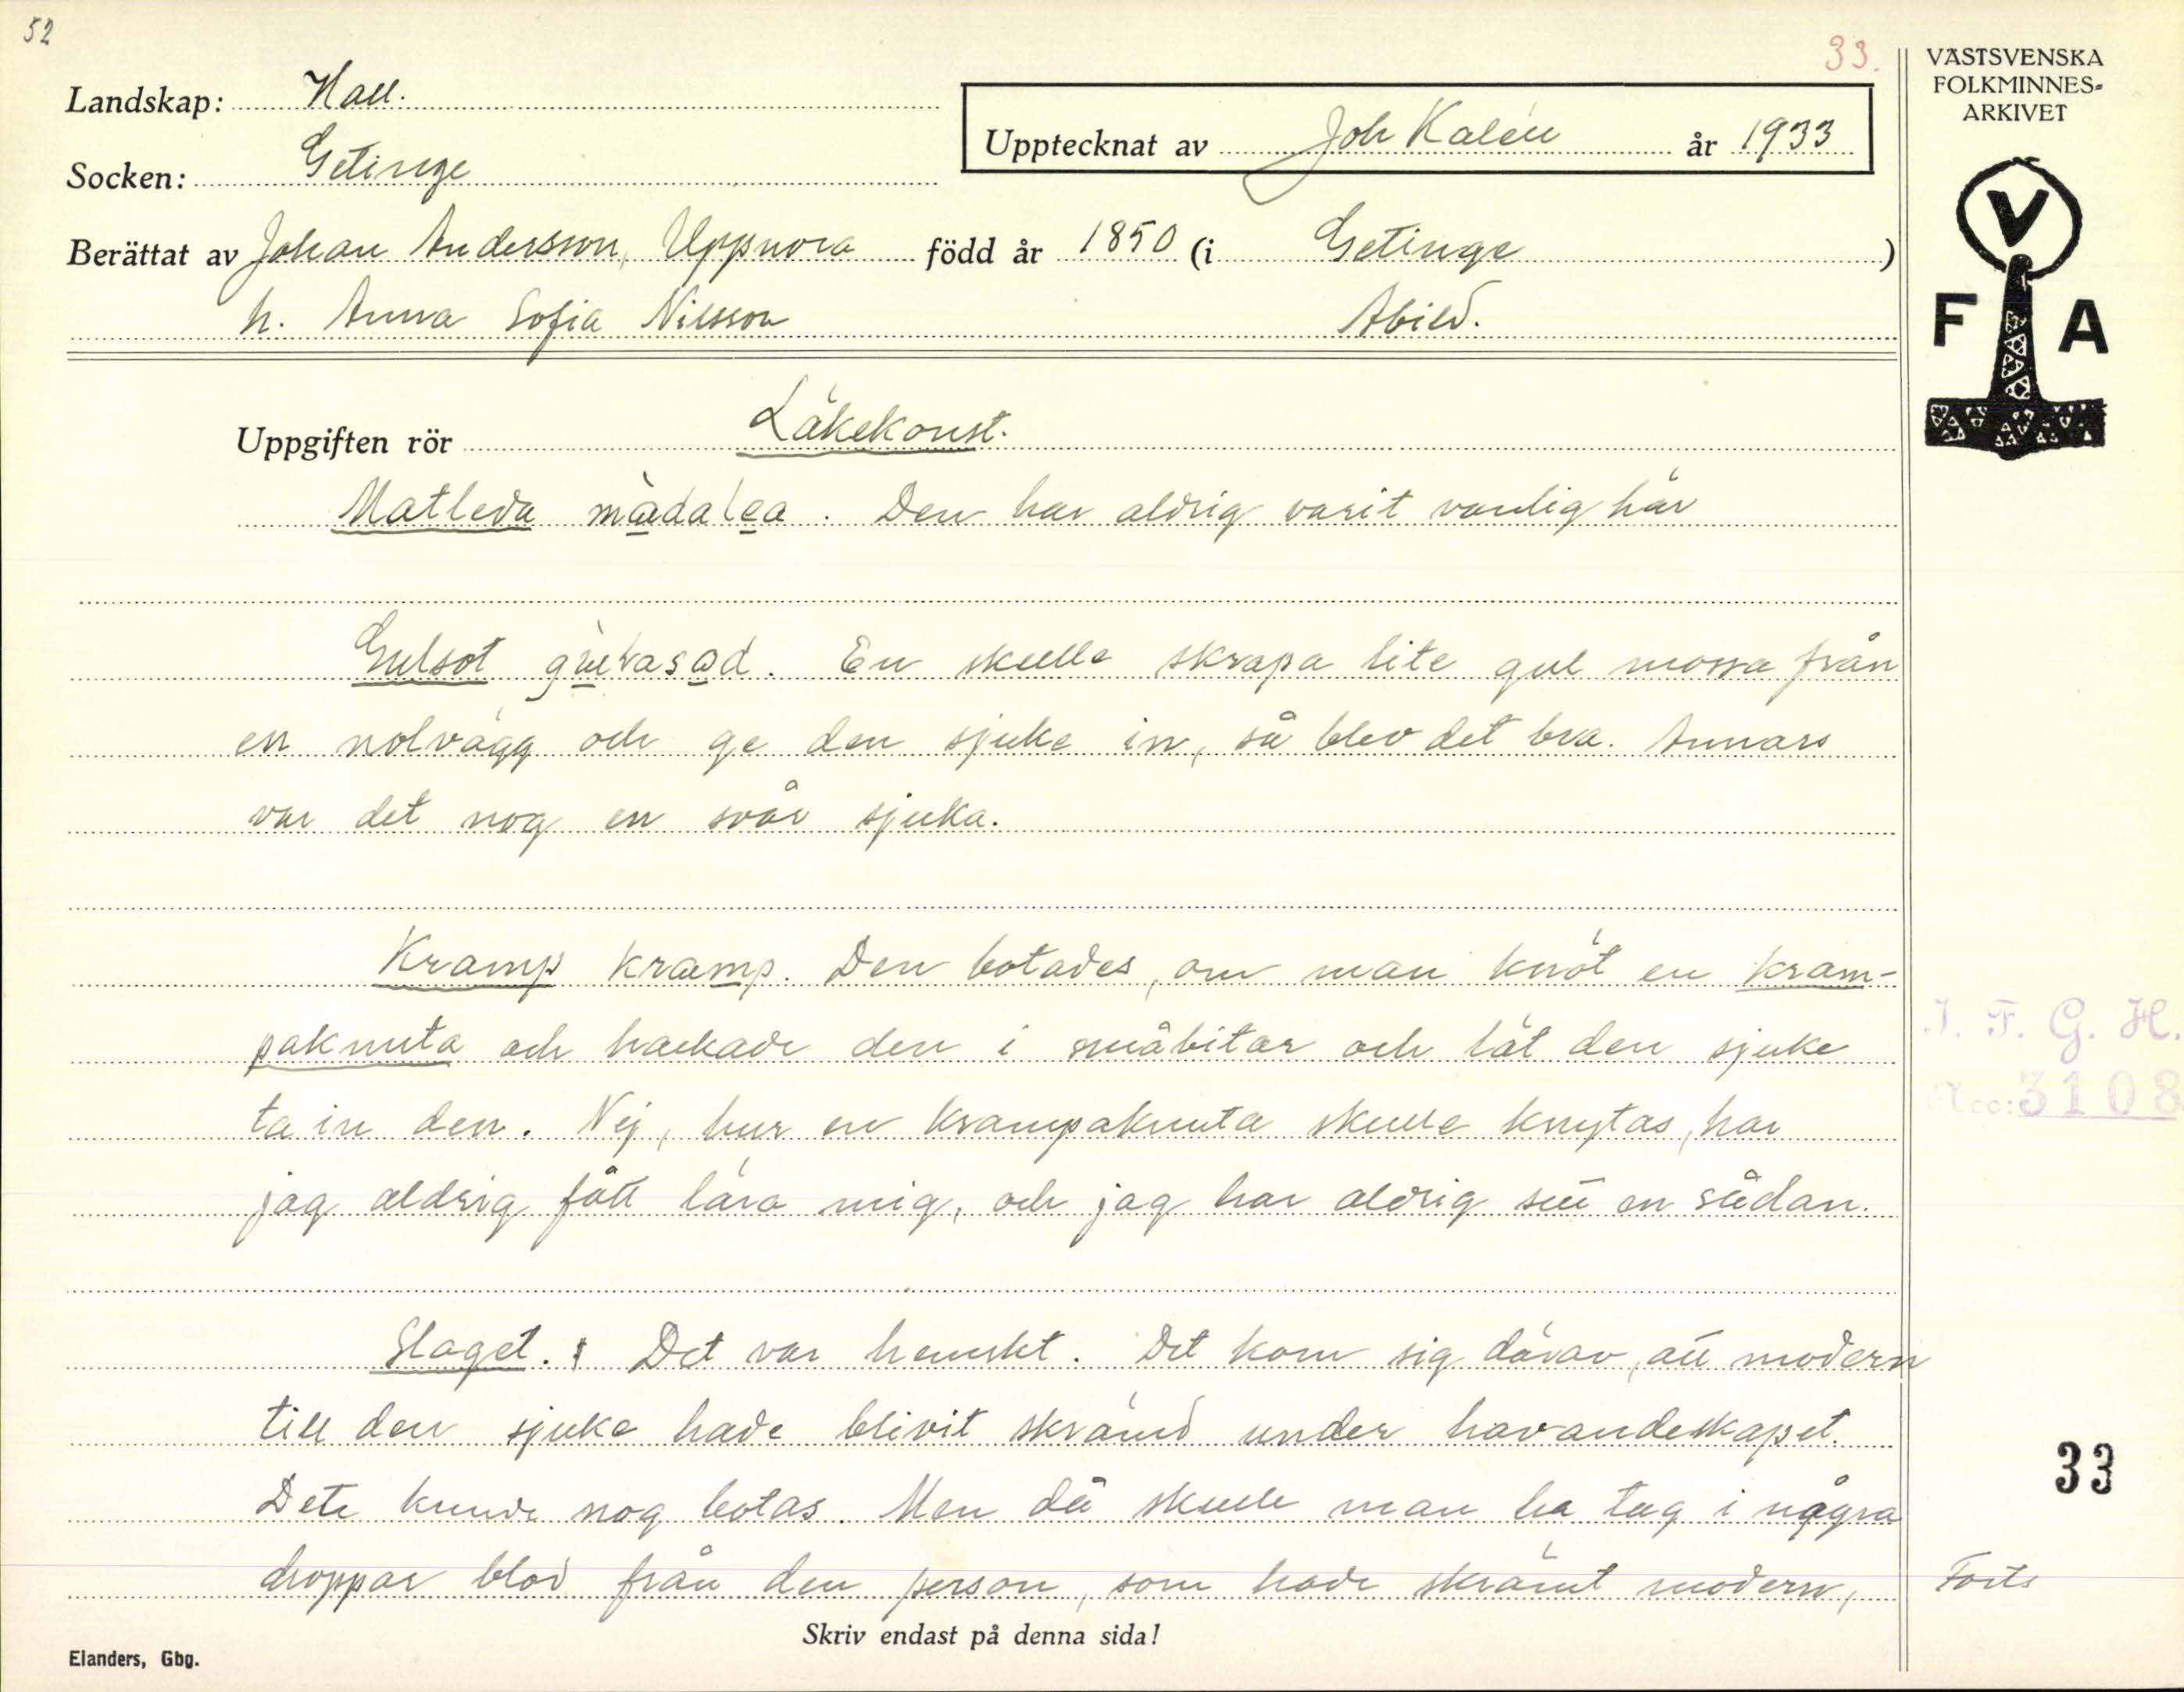 52
33.
Landskap: Hall.
Socken: Getinge
Upptecknat av Joh Kalén år 1933
Berättat av Johan Andersson, Uppnora född år 1850 (i Getinge)
h. Anna Sofia Nilsson Abild.
VÄSTSVENSKA
FOLKMINNES-
ARKIVET
V
F A
Uppgiften rör Läkekonst.
Matleda mædalea. Den har aldrig varit vanlig här
Gulsot. En skulle skrapa lite gul mossa från
en nolvägg och ge den sjuke in, så blev det bra. Annars
var det nog en svår sjuka.
Kramp kramp. Den botades, om man knöt en kram-
paknuta och hackade den i småbitar och lät den sjuke
ta in den. Nej, hur en krampaknuta skulle knytas, har
jag aldrig fått lära mig, och jag har aldrig sett en sådan.
Slaget. Det var hemskt. Det kom sig därav, att modern
till den sjuke hade blivit skrämd under havandeskapet.
Dete kunde nog botas. Men då skulle man ha tag i några
droppar blod från den person, som hade skrämt modern,
Forts
I. F. G. H.
Acc: 3108
33
Skriv endast på denna sida!
Elanders, Gbg.